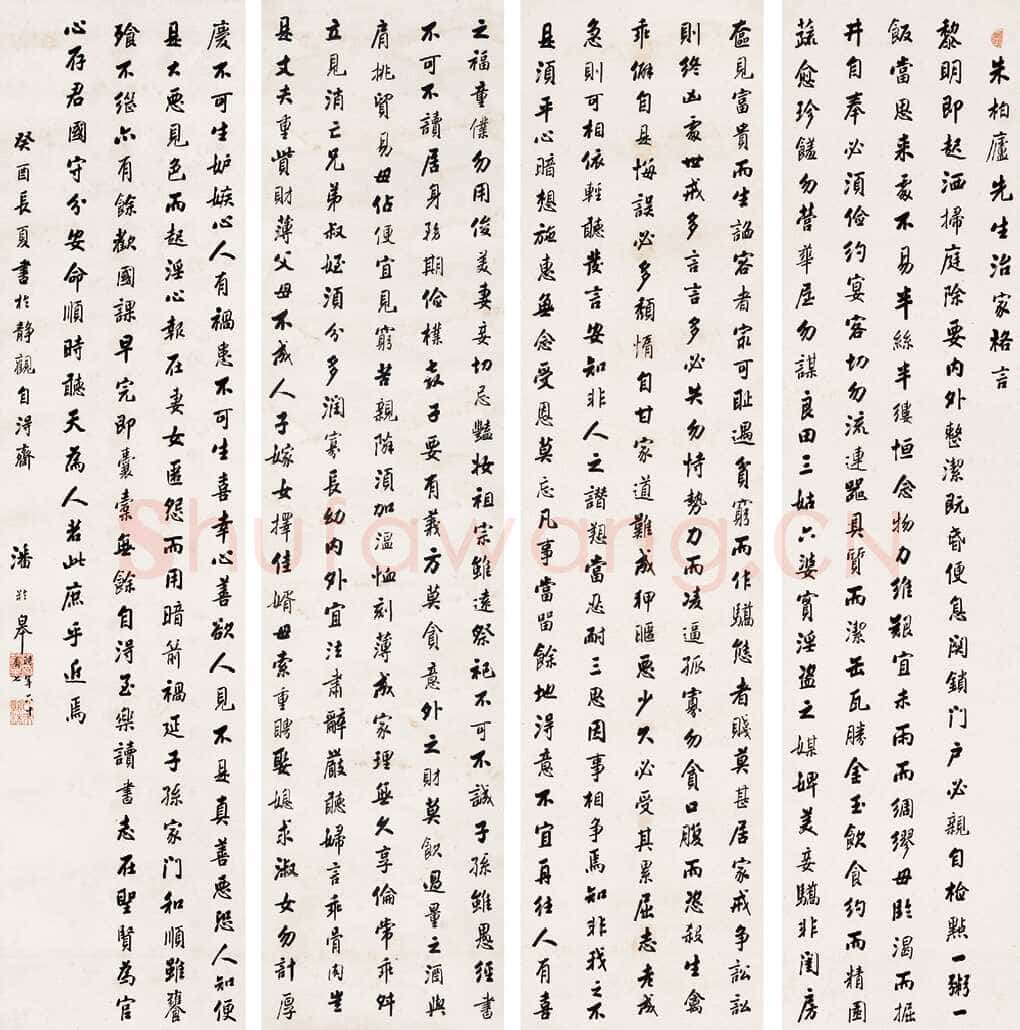 朱柏廬先生治家格言
黎明即起洒掃庭除要內外整潔既昏便息関鎖门户必親自檢點一粥一
飯當思來處不易半絲半縷恒念物力維艱宜未雨而綢繆毋臨渴而掘
井自奉必須儉約宴客切勿流連器具質而潔缶瓦勝金玉飲食約而精園
蔬愈珍饈勿營華屋勿謀良田三姑六婆實淫盜之媒婢美妾驕非閨房
奩見富貴而生諂容者冣可耻遇貧窮而作驕態者賤莫甚居家戒争訟訟
則終凶處世戒多言言多必失勿恃勢力而凌逼孤寡勿貪口腹而恣殺生禽
乖僻自是悔誤必多頹惰自甘家道難成狎暱惡少久必受其累屈志老成
急則可相依輕聽發言安知非人之譖愬當忍耐三思因事相争焉知非我之不
是須平心暗想施惠無念受恩莫忘凡事當留餘地淂意不宜再往人有喜
之福童僕勿用俊美妻妾切忌豔妝祖宗雖遠祭祀不可不誠子孫雖愚經書
不可不讀居身務期儉樸教子要有義方莫貪意外之財莫飲過量之酒與
肩挑貿易毋佔便宜見窮苦親隣須加温恤刻薄成家理無久享倫常乖舛
立見消亡兄弟叔姪須分多潤寡長幼內外宜法肅辭嚴聽婦言乖骨肉豈
是丈夫重貲財薄父母不成人子嫁女擇佳婿毋索重聘娶媳求淑女勿計厚
慶不可生妒嫉心人有禍患不可生喜幸心善欲人見不是真善惡恐人知便
是大惡見色而起淫心報在妻女匿怨而用暗箭禍延子孫家门和順雖饔
飧不繼亦有餘歡國課早完即囊橐無餘自淂至樂讀書志在聖賢為官
心存君國守分安命順時聽天為人若此庶乎近焉
癸酉長夏書於静觀自淂齋 潘齡皋
Shufawang.CN